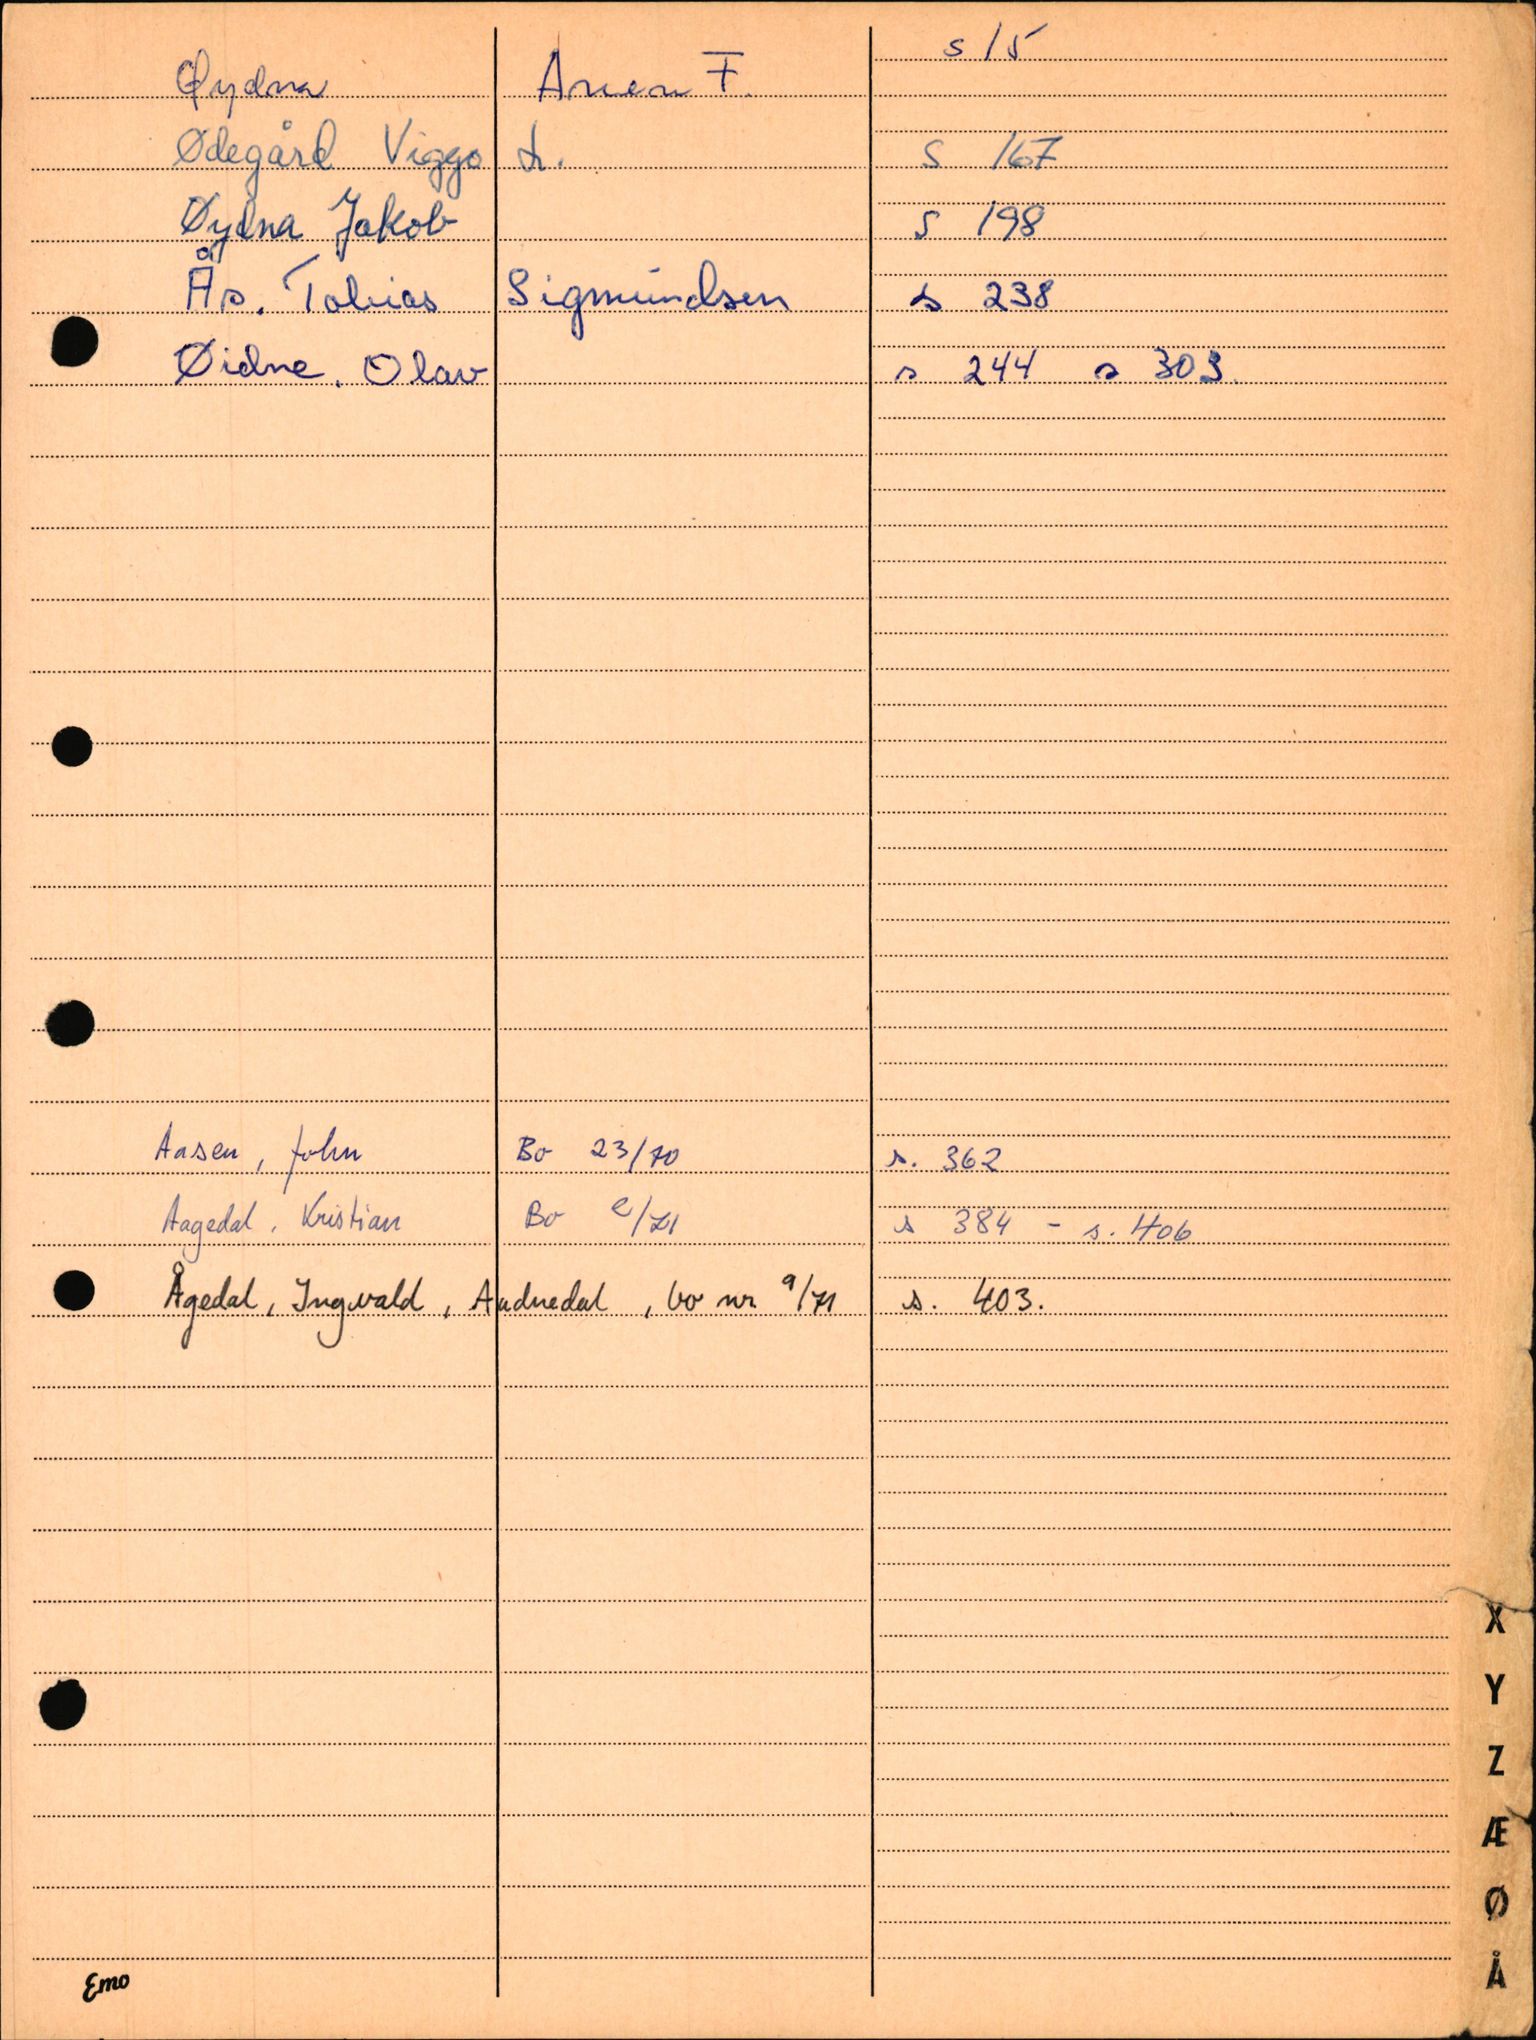 Øydna Anen F. s 15
Ødegård Viggo L. s 167
Øydna Jakob s 198
Ås. Tobias Sigmundsen s 238
Øidne. Olav s 244 s 303.
Aasen, John Bo 23/70 s. 362
Aagedal, Kristian Bo /71 s 384 - s. 406
Ågedal, Ingvald, Audnedal, bo nr 9/71 s. 403.
X
Y
Z
Æ
Ø
Å
Emo